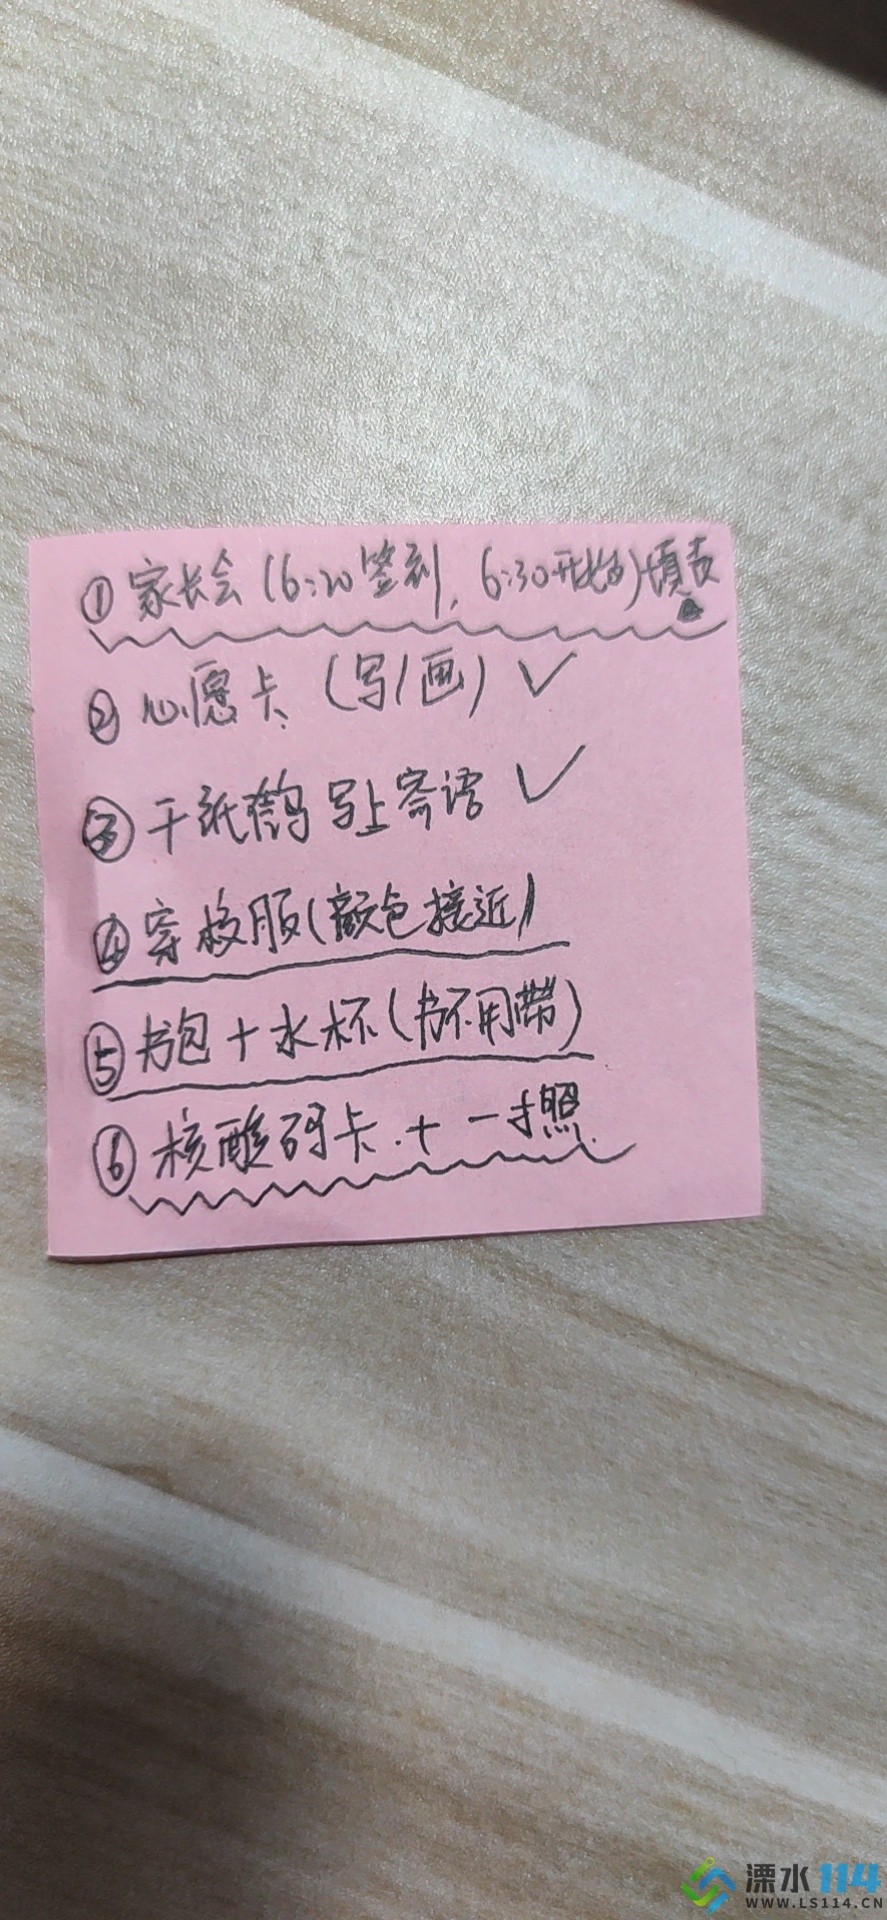 ①家长会(6:20签到，6:30开始)填表
②心愿卡(写/画)✓
③千纸鹤写上寄语✓
④穿校服(颜色接近)
⑤书包+水杯(书不用带)
⑥核酸码卡.+一照
溧水114
WWW.LS114.CN